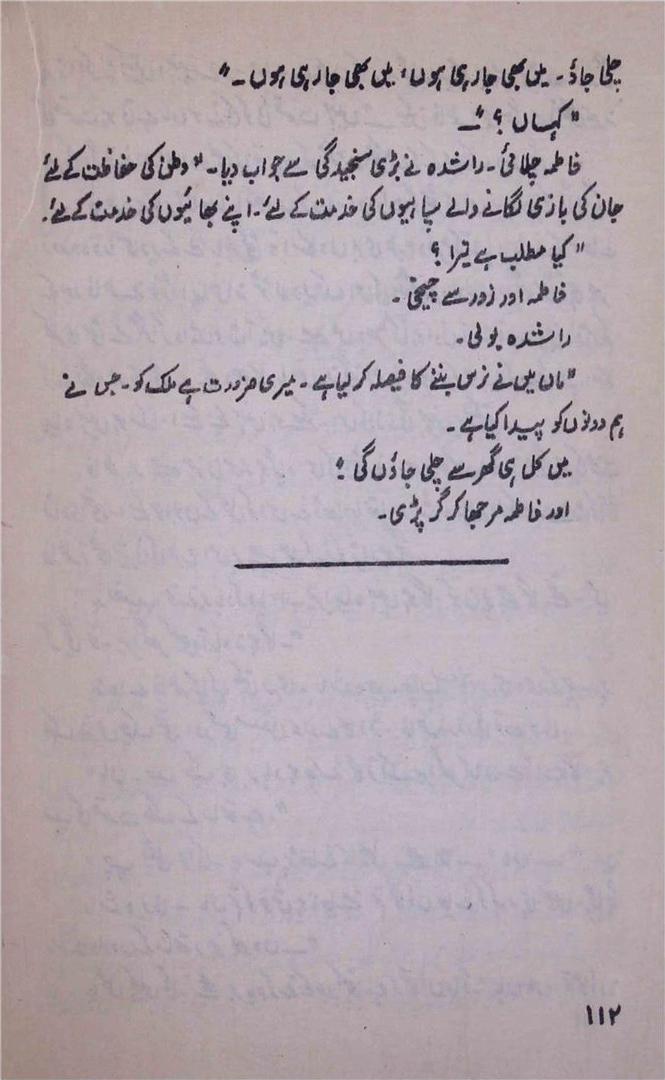 چلی جاؤ۔ میں بھی جا رہی ہوں، میں بھی جا رہی ہوں۔"
"کہاں؟"۔
فاطمہ چلائی۔ راشدہ نے بڑی سنجیدگی سے جواب دیا۔ "وطن کی حفاظت کے لئے
جان کی بازی لگانے والے سپاہیوں کی خدمت کے لئے۔ اپنے بھائیوں کی خدمت کے لئے۔
"کیا مطلب ہے تیرا؟
فاطمہ اور زور سے چیخی۔
راشدہ بولی۔
"ماں میں نے نرس بننے کا فیصلہ کر لیا ہے۔ میری ضرورت ہے ملک کو۔ جس نے
ہم دونوں کو پیدا کیا ہے۔
میں کل ہی گھر سے چلی جاؤں گی!
اور فاطمہ مرجھا کر گر پڑی۔
۱۱۲